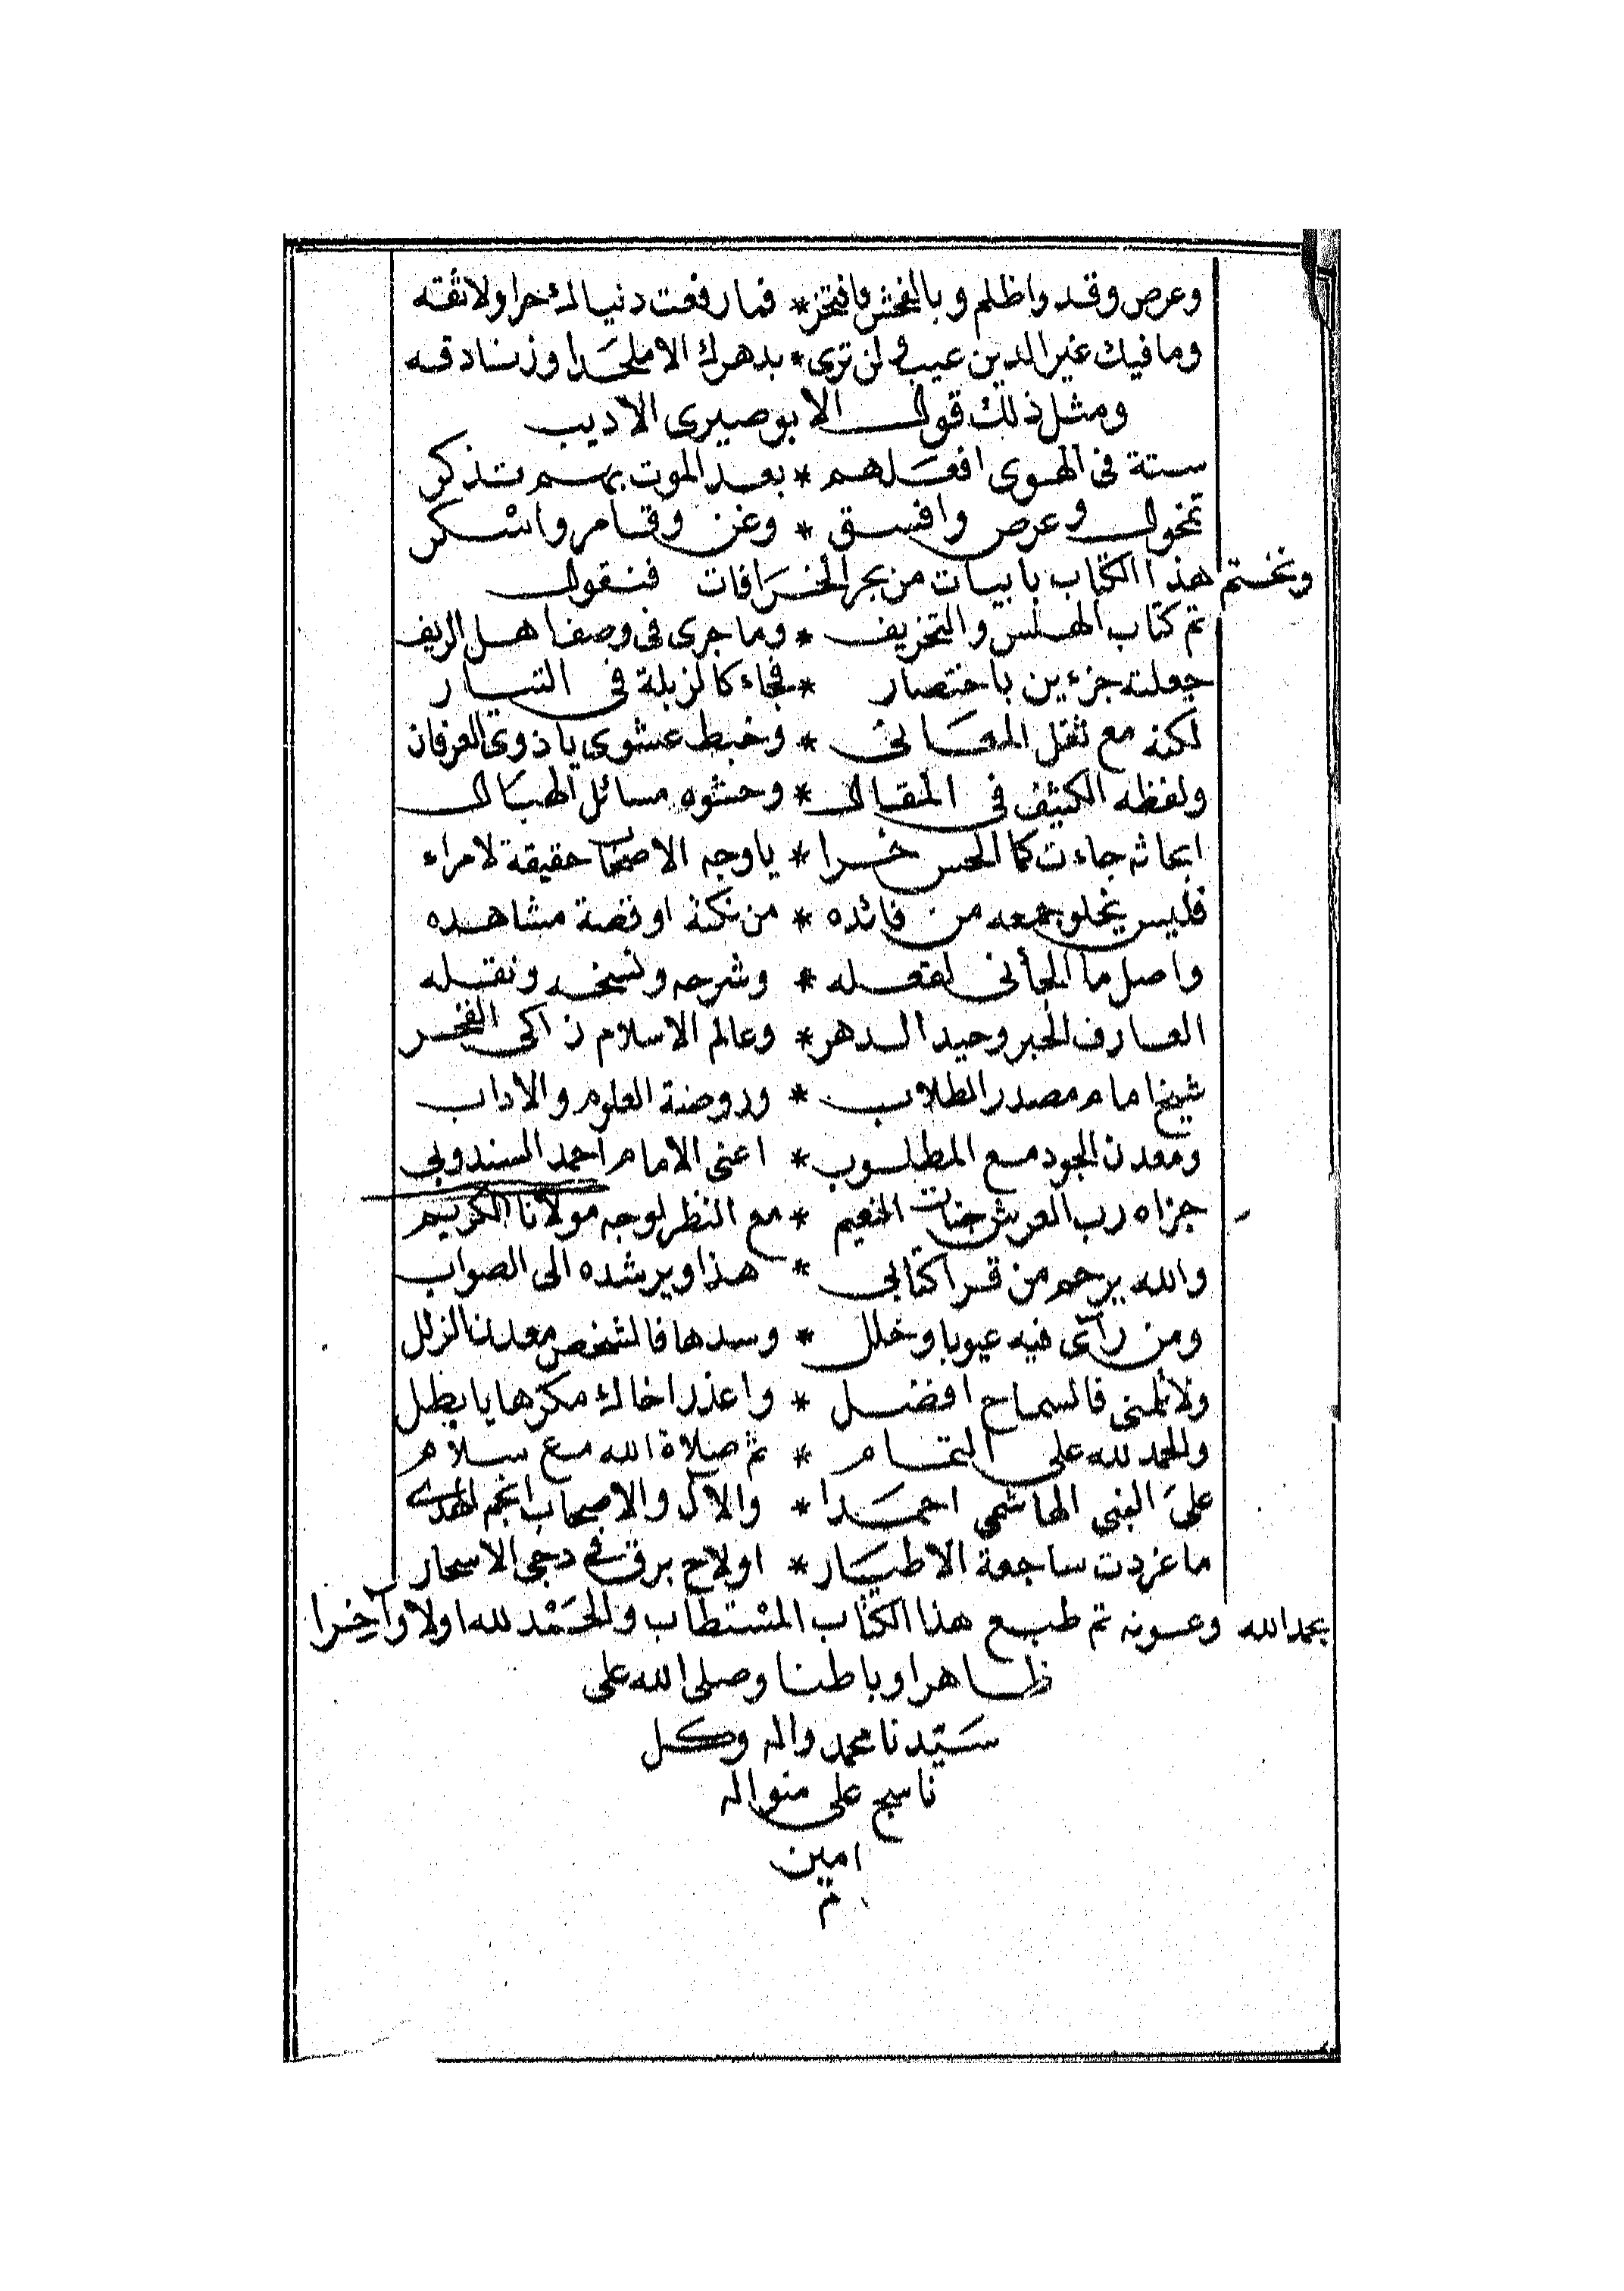 وعرص وقد واظلم وبالفحش فافتخر * فما رفعت دنياك حرا ولا ثقته
وما فيك غير الدين عيب فلن ترى * بدهرك الا ملحدا وزنادقه
ومثل ذلك قول الابوصيرى الاديب
ستة فى الهوى افعلهم * بعد الموت بهم تذكر
تمخول وعرص وافسق * وغن وقامر واسكر
ونختم هذا الكتاب بابيات من بحر الخرافات فنقول
تم كتاب الهلس والتخريف * وما جرى فى وصف اهل الريف
جعلته جزءين باختصار * فجاء كالزبلة فى التيار
لكنه مع ثقل المعانى * وخبط عشوى يا ذوى العرفان
ولفظه الكثيف فى المقال * وحشوه مسائل الهبال
ابحاثه جاءت كما لحس خرا * ياوجه الاصحاب حقيقة لامراء
فليس يخلو جمعه من فائده * من نكتة او قصة مشاهده
واصل ما الجأنى لفعله * وشرحه ونسخه ونقله
العارف الحبر وحيد الدهر * وعالم الاسلام زاكى الفخر
شيخ امام مصدر الطلاب * وروضة العلوم والاداب
ومعدن الجود مع المطلوب * اعنى الامام احمد السندوبى
جزاه رب العرش جنات النعيم * مع النظر لوجه مولانا الكريم
والله يرحم من قرا كتابى * هذا ويرشده الى الصواب
ومن رأى فيه عيوبا وخلل * وسدها فالشخص معدن الزلل
ولا تلمنى فالسماح افضل * واعذر اخاك مكرها يا بطل
والحمد لله على التمام * ثم صلاة الله مع سلام
على النبى الهاشمى احمدا * والآل والاصحاب انجم الهدى
ما غردت ساجعة الاطيار * اولاح برق فى دجى الاسحار
بحمد الله وعونه تم طبع هذا الكتاب المستطاب والحمد لله اولا وآخرا
ظاهرا وباطنا وصلى الله على
سيدنا محمد واله وكل
ناسج على منواله
امين
م